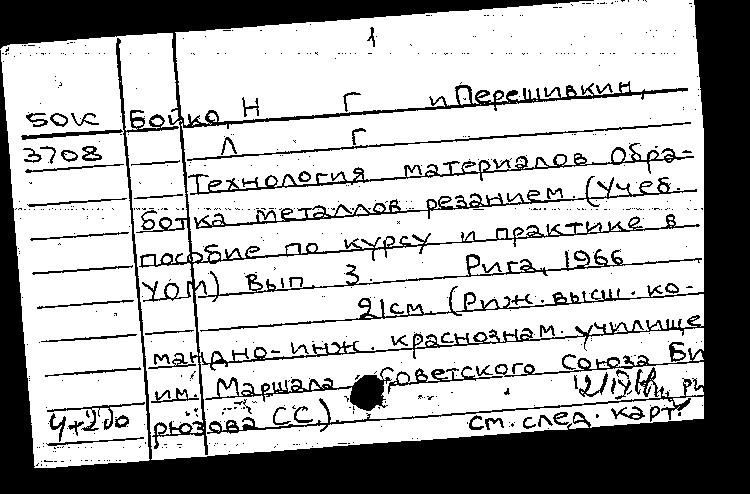 1
БОК Бойко, Н Г и Перешивкин,
3708 Л Г
Технология материалов. Обра-
ботка металлов резанием. (Учеб.
пособие по курсу и практике в
УОМ) Вып. 3. Рига, 1966
21см. (Риж. высш. ко-
мандно-инж. краснознам. училище
им. Маршала Советского Союза Би
рюзова С.С.).
см. след. карт.